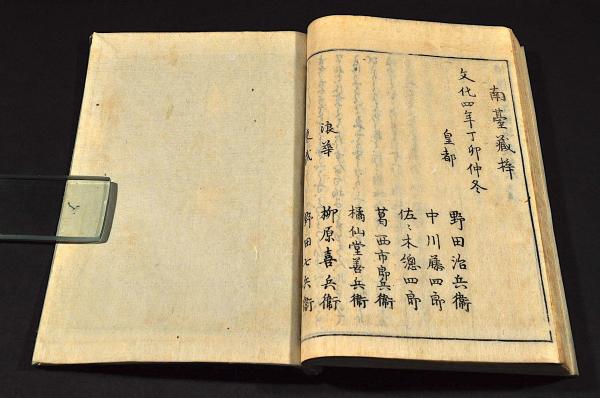 南臺藏梓
文化四年丁卯仲冬
皇都
野田治兵衞
中川藤四郎
佐々木總四郎
葛西市郎兵衞
橘仙堂善兵衞
浪華
柳原喜兵衞
野田七兵衞